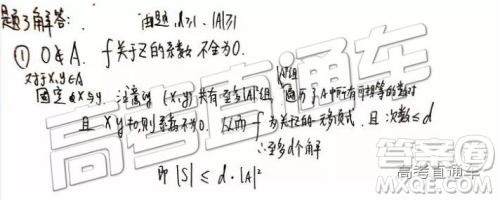 题3解答: 由题, d≥1, |A|≥1
① 0∉A. f关于z的系数不全为0.
对于x,y∈A
固定x与y, 注意到 (x,y) 共有至多|A|²组, 遍历了A中所有可相等的数对
且 xy≠0, 则系数不为0. 从而 f 为关于z的一元多项式, 且次数≤d
∴至多d个解
即 |S| ≤ d·|A|²
高考直通车
答案圈
MXQE.COM
高考直通车